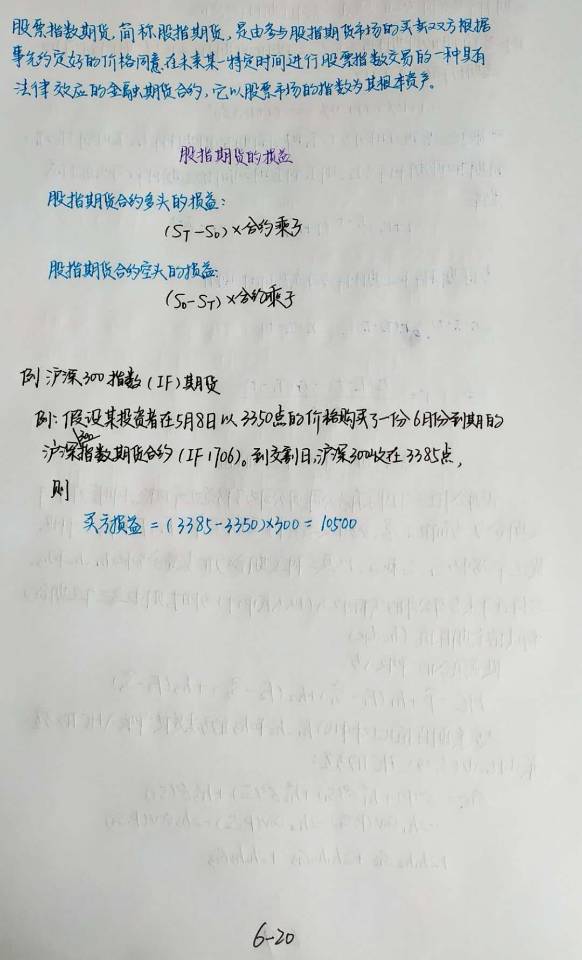 股票指数期货,简称股指期货,是由参与股指期货市场的买卖双方根据
事先约定好的价格同意在未来某一特定时间进行股票指数交易的一种具有
法律效应的金融期货合约,它以股票市场的指数为其根本资产。
股指期货的损益
股指期货合约多头的损益:
(S_T-S_0)×合约乘子
股指期货合约空头的损益:
(S_0-S_T)×合约乘子
例 沪深300指数(IF)期货
例:假设某投资者在5月8日以3350点的价格购买了一份6月份到期的
沪深300指数期货合约(IF1706)。到交割日,沪深300收在3385点,
则
买方损益=(3385-3350)×300=10500
6-20